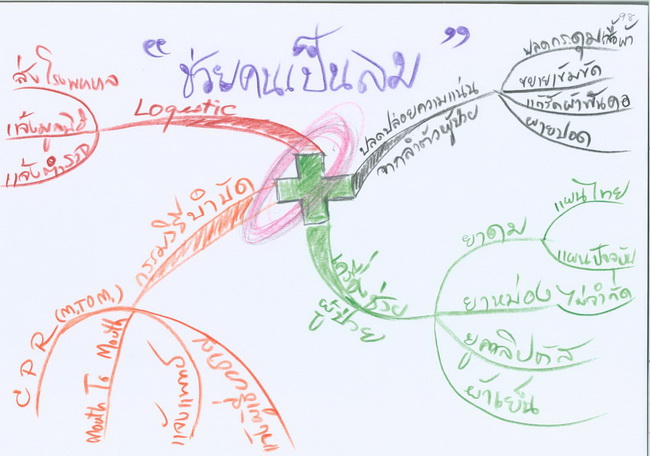 98
"ช่วยคนเป็นลม"
ปลดกระดุมเสื้อผ้า
ขยายเข็มขัด
ผายปอด
ปลดปล่อยความแน่น
จากลำตัวผู้ป่วย
ส่งโรงพยาบาล
แจ้งมูลนิธิ
แจ้งตำรวจ
Logustic
กรรมวิธีบำบัด
CPR (M.TOM.)
Mouth To Mouth
ผู้ป่วย
ยาดม
แผนไทย
แผนปัจจุบัน
ยาหม่อง
ไม่จำกัด
ยูคาลิปตัส
ผ้าเย็น